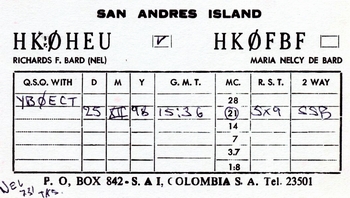 SAN ANDRES ISLAND
HKØHEU HKØFBF
RICHARDS F. BARD (NEL) MARIA NELCY DE BARD
Q.S.O. WITH D M Y G. M. T. MC. R. S. T. 2 WAY
28
YBØECT 25 XII 98 15:36 21 5x9 SSB
14
7
3.7
1:8
P. O, BOX 842 - S A I, COLOMBIA S. A. Tel. 23501
NEL
73!